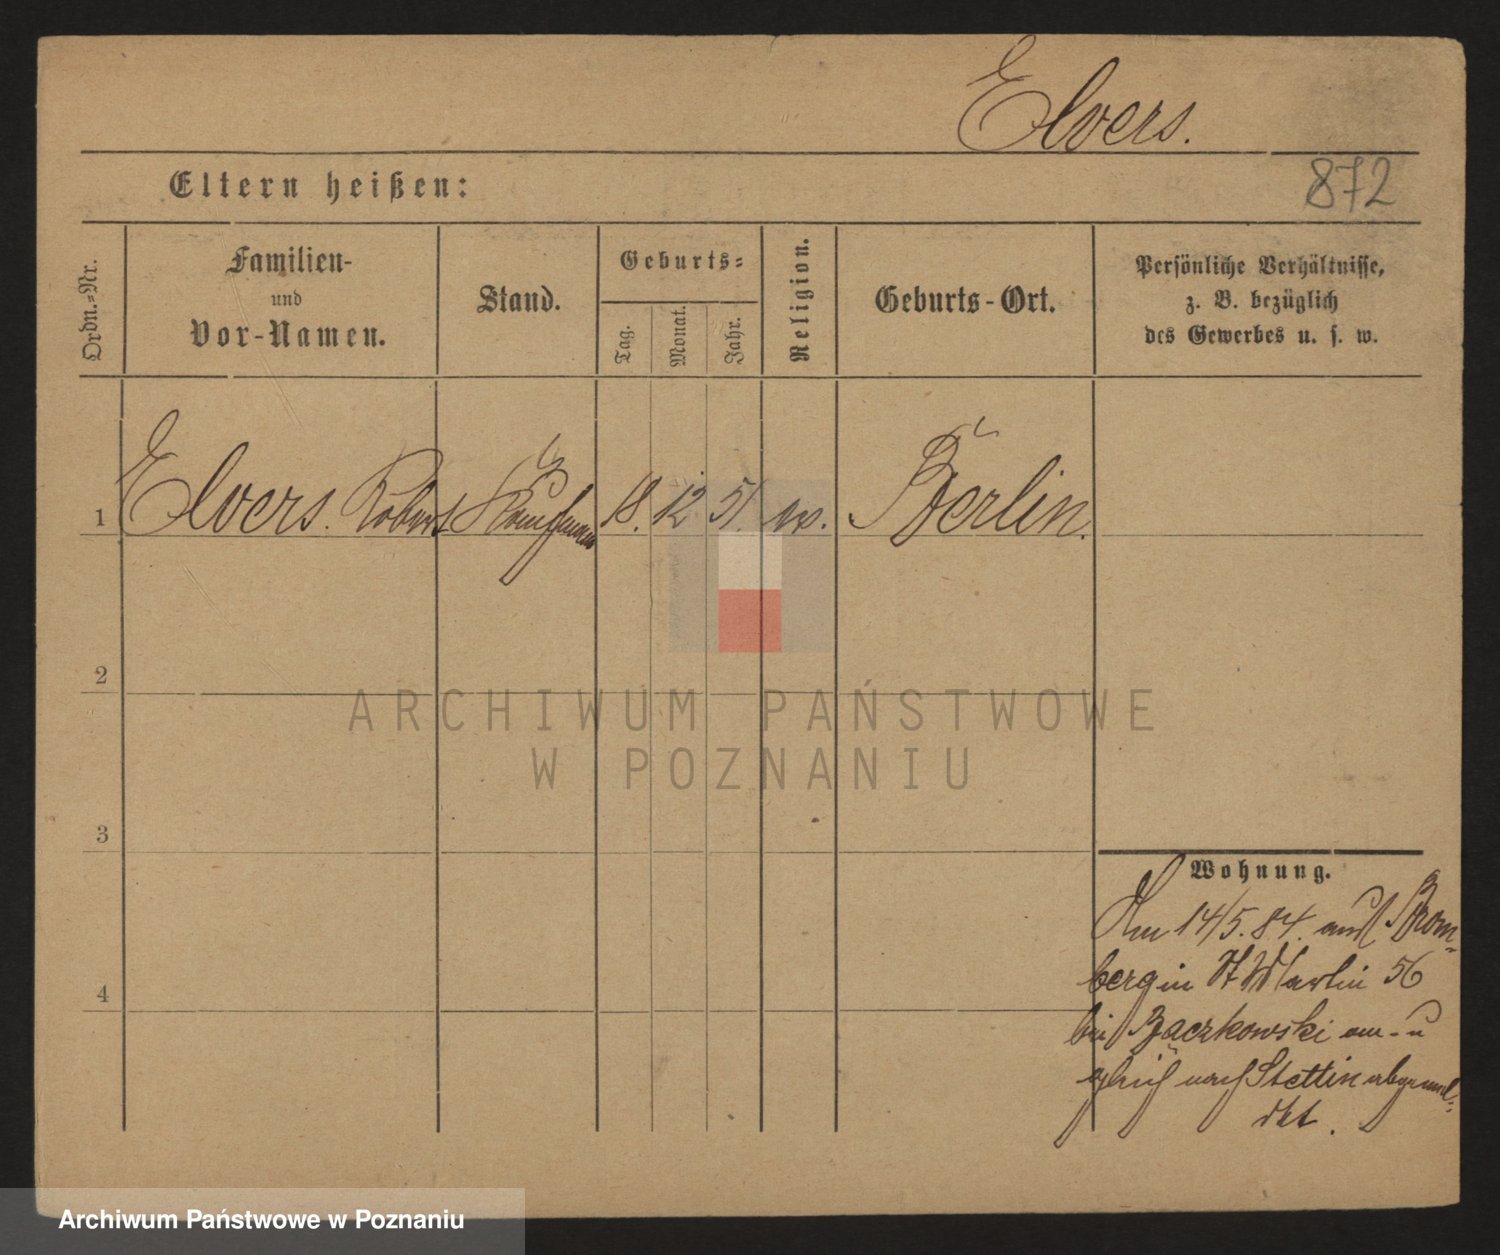 Elvers.
872
Eltern heißen:
Ordn.-Nr.
Familien-
und
Vor-Namen.
Stand.
Geburts-
Tag.
Monat.
Jahr.
Religion.
Geburts-Ort.
Persönliche Verhältnisse,
z. B. bezüglich
des Gewerbes u. s. w.
1 Elvers. Robert Kaufmann 18. 12 51. Berlin.
2
3
4
Wohnung.
Am 14/5. 84. aus Brom-
berg in St Martin 56
bei Baczkowski an- u
gleich nach Stettin abgemel-
det.
ARCHIWUM PAŃSTWOWE
W POZNANIU
Archiwum Państwowe w Poznaniu